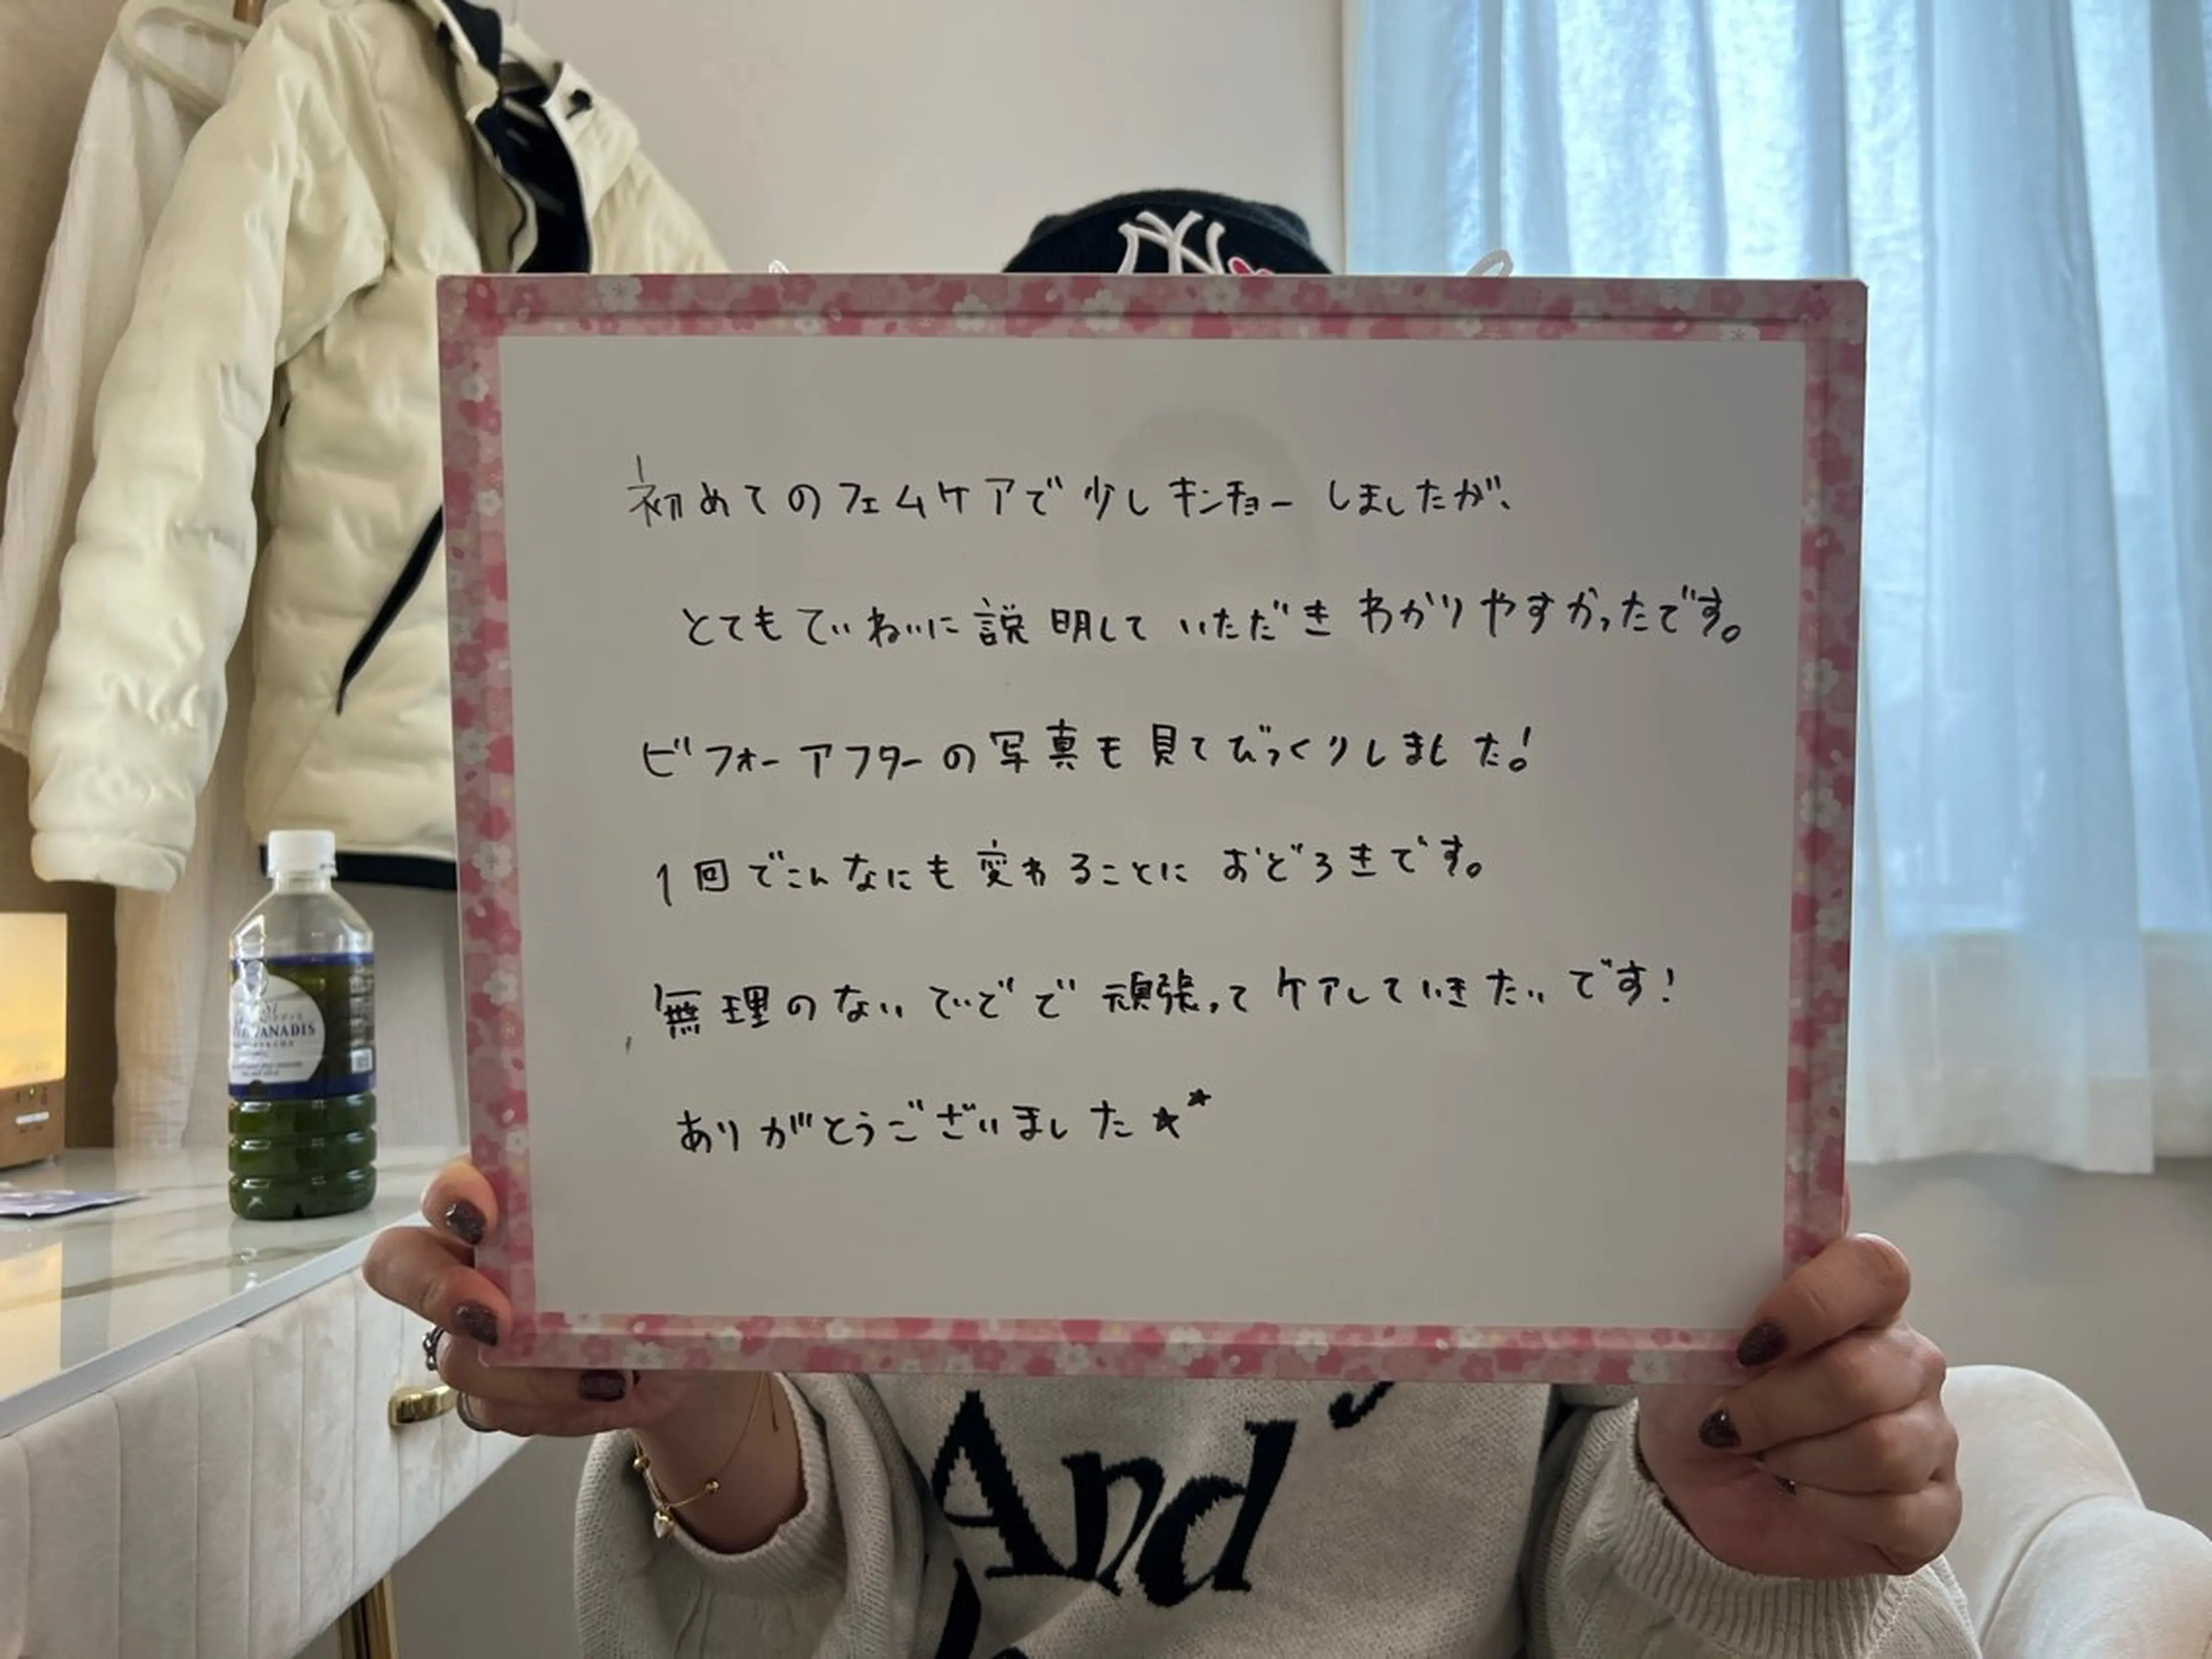 NY
初めてのフェムケアで少しキンチョーしましたが、
とてもていねいに説明していただきわかりやすかったです。
ビフォーアフターの写真も見てびっくりしました!
1回でこんなにも変わることにおどろきです。
無理のないていどで頑張ってケアしていきたいです!
ありがとうございました★★
And